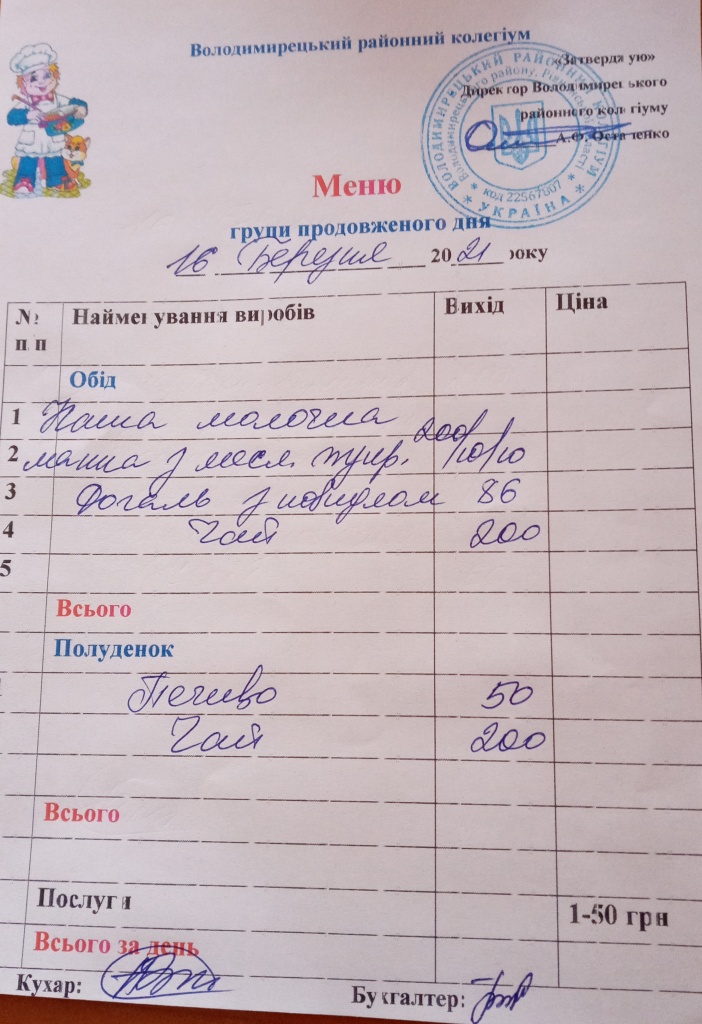 Володимирецький районний колегіум
«Затверджую»
Директор Володимирецького
районного колегіуму
А.О. Остапенко
ВОЛОДИМИРЕЦЬКИЙ РАЙОННИЙ КОЛЕГІУМ
* код 22567007 *
* УКРАЇНА *
Меню
групи продовженого дня
16 Березня 2021 року
№ п/п Найменування виробів Вихід Ціна
Обід
1 Каша молочна
2 манна з масл. 200/10/10
3 Рогаль з повидлом 86
4 Чай 200
5
Всього
Полуденок
1 Печиво 50
Чай 200
Всього
Послуги 1-50 грн
Всього за день
Кухар: Бухгалтер: